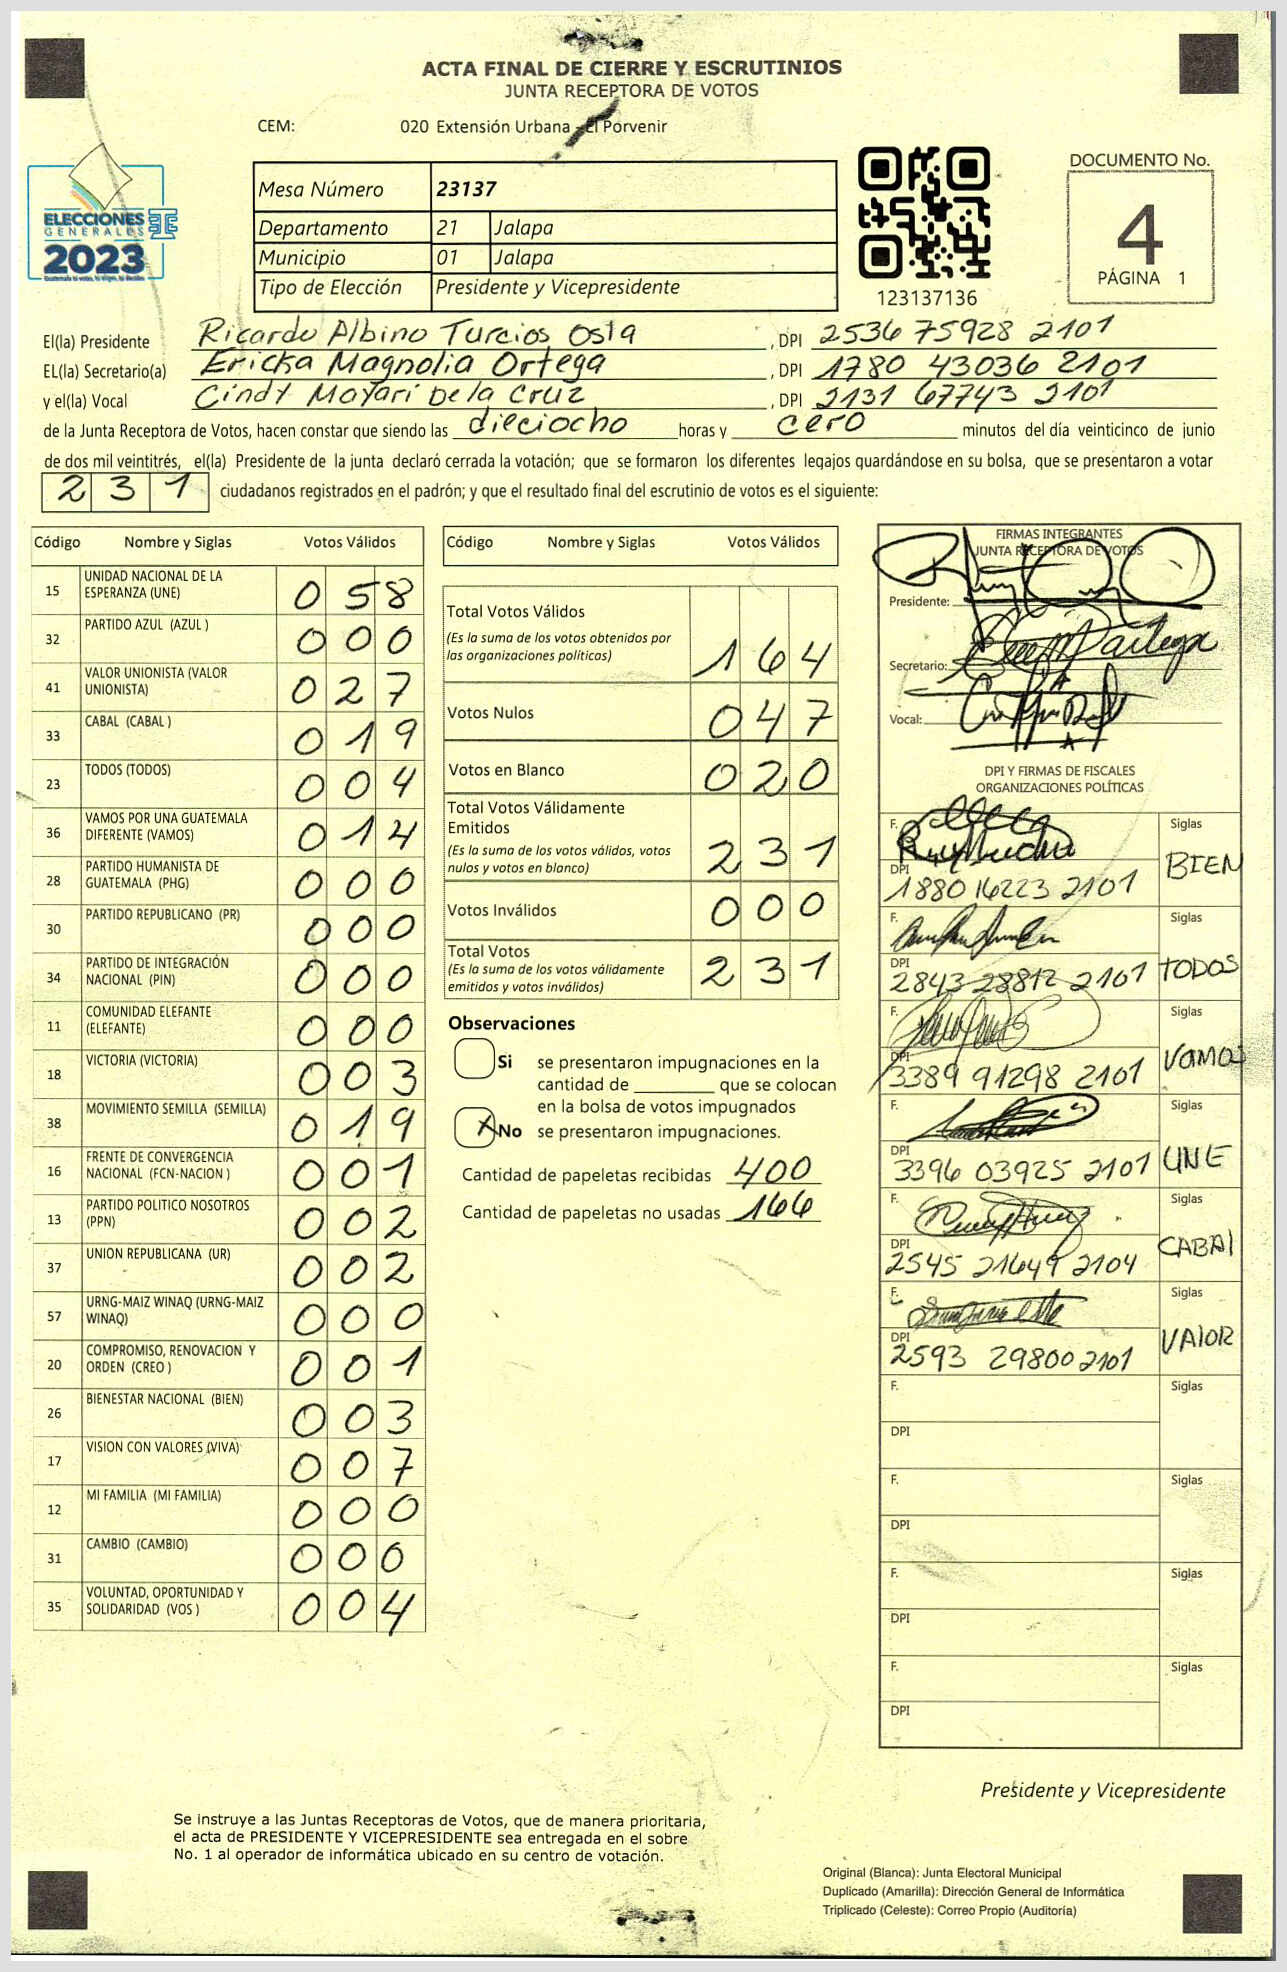 ACTA FINAL DE CIERRE Y ESCRUTINIOS
JUNTA RECEPTORA DE VOTOS
CEM: 020 Extensión Urbana - El Porvenir
ELECCIONES
GENERALES
2023
Mesa Número 23137
Departamento 21 Jalapa
Municipio 01 Jalapa
Tipo de Elección Presidente y Vicepresidente
123137136
DOCUMENTO No.
4
PÁGINA 1
El(la) Presidente Ricardo Albino Turcios Osla , DPI 2536 75928 2101
EL(la) Secretario(a) Ericka Magnolia Ortega , DPI 1780 43036 2101
y el(la) Vocal Cindy Mayari De la Cruz , DPI 2131 67743 2101
de la Junta Receptora de Votos, hacen constar que siendo las dieciocho horas y cero minutos del día veinticinco de junio
de dos mil veintitrés, el(la) Presidente de la junta declaró cerrada la votación; que se formaron los diferentes legajos quardándose en su bolsa, que se presentaron a votar
231 ciudadanos registrados en el padrón; y que el resultado final del escrutinio de votos es el siguiente:
Código Nombre y Siglas Votos Válidos
15 UNIDAD NACIONAL DE LA ESPERANZA (UNE) 058
32 PARTIDO AZUL (AZUL ) 000
41 VALOR UNIONISTA (VALOR UNIONISTA) 027
33 CABAL (CABAL ) 019
23 TODOS (TODOS) 004
36 VAMOS POR UNA GUATEMALA DIFERENTE (VAMOS) 014
28 PARTIDO HUMANISTA DE GUATEMALA (PHG) 000
30 PARTIDO REPUBLICANO (PR) 000
34 PARTIDO DE INTEGRACIÓN NACIONAL (PIN) 000
11 COMUNIDAD ELEFANTE (ELEFANTE) 000
18 VICTORIA (VICTORIA) 003
38 MOVIMIENTO SEMILLA (SEMILLA) 019
16 FRENTE DE CONVERGENCIA NACIONAL (FCN-NACION ) 001
13 PARTIDO POLITICO NOSOTROS (PPN) 002
37 UNION REPUBLICANA (UR) 002
57 URNG-MAIZ WINAQ (URNG-MAIZ WINAQ) 000
20 COMPROMISO, RENOVACION Y ORDEN (CREO ) 001
26 BIENESTAR NACIONAL (BIEN) 003
17 VISION CON VALORES (VIVA) 007
12 MI FAMILIA (MI FAMILIA) 000
31 CAMBIO (CAMBIO) 000
35 VOLUNTAD, OPORTUNIDAD Y SOLIDARIDAD (VOS ) 004
Código Nombre y Siglas Votos Válidos
Total Votos Válidos 164
(Es la suma de los votos obtenidos por
las organizaciones políticas)
Votos Nulos 047
Votos en Blanco 020
Total Votos Válidamente
Emitidos 231
(Es la suma de los votos válidos, votos
nulos y votos en blanco)
Votos Inválidos 000
Total Votos 231
(Es la suma de los votos válidamente
emitidos y votos inválidos)
Observaciones
Si se presentaron impugnaciones en la
cantidad de que se colocan
en la bolsa de votos impugnados
X No se presentaron impugnaciones.
Cantidad de papeletas recibidas 400
Cantidad de papeletas no usadas 166
FIRMAS INTEGRANTES
JUNTA RECEPTORA DE VOTOS
Presidente:
Secretario:
Vocal:
DPI Y FIRMAS DE FISCALES
ORGANIZACIONES POLÍTICAS
F. Siglas
DPI 1880 16223 2101 BIEN
F. Siglas
DPI 2843 28812 2101 TODOS
F. Siglas
DPI 3389 91298 2101 VAMOS
F. Siglas
DPI 3396 03925 2101 UNE
F. Siglas
DPI 2545 21649 2104 CABAl
F. Siglas
DPI 2593 29800 2101 VAlOR
F. Siglas
DPI
F. Siglas
DPI
F. Siglas
DPI
F. Siglas
DPI
Presidente y Vicepresidente
Se instruye a las Juntas Receptoras de Votos, que de manera prioritaria,
el acta de PRESIDENTE Y VICEPRESIDENTE sea entregada en el sobre
No. 1 al operador de informática ubicado en su centro de votación.
Original (Blanca): Junta Electoral Municipal
Duplicado (Amarilla): Dirección General de Informática
Triplicado (Celeste): Correo Propio (Auditoría)